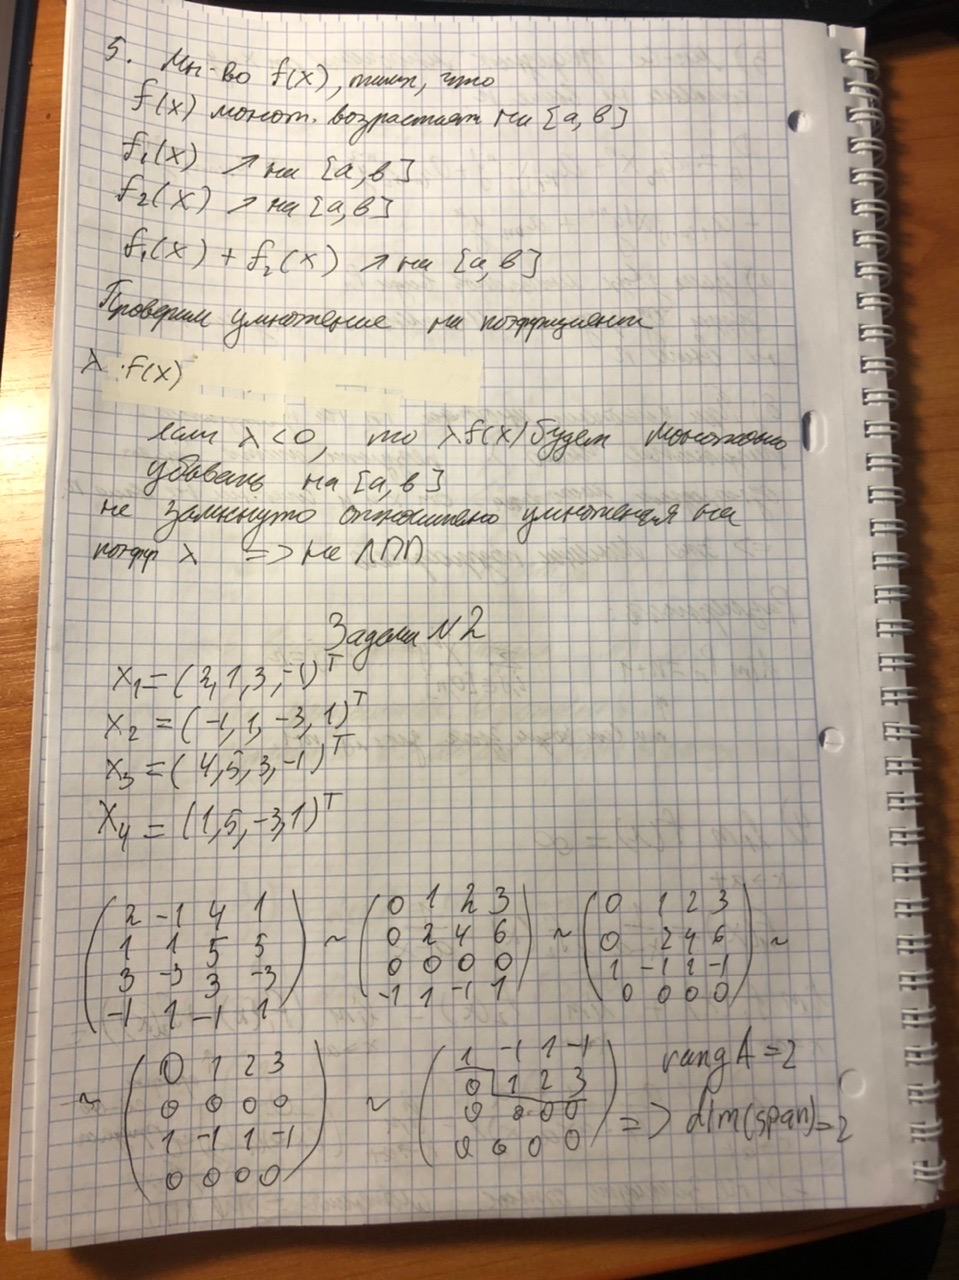 5. Мн-во f(x), таких, что
f(x) монот. возрастает на [a,b]
f₁(x) ↗ на [a,b]
f₂(x) ↗ на [a,b]
f₁(x) + f₂(x) ↗ на [a,b]
Проверим умножение на коэффициент
λ·f(x)
если λ<0, то λf(x) будет монотонно
убывать на [a,b]
не замкнуто относительно умножения на
коэфф λ => не ЛПП
Задача N2
x₁=(2,1,3,-1)ᵀ
x₂=(-1,1,-3,1)ᵀ
x₃=(4,5,3,-1)ᵀ
x₄=(1,5,-3,1)ᵀ
(2 -1 4 1) (0 1 2 3) (0 1 2 3)
(1 1 5 5) ~ (0 2 4 6) ~ (0 2 4 6) ~
(3 -3 3 -3) (0 0 0 0) (1 -1 1 -1)
(-1 1 -1 1) (-1 1 -1 1) (0 0 0 0)
(0 1 2 3) (1 -1 1 -1) rang A = 2
~ (0 0 0 0) ~ (0 1 2 3)
(1 -1 1 -1) (0 0 0 0) => dim(span)=2
(0 0 0 0) (0 0 0 0)